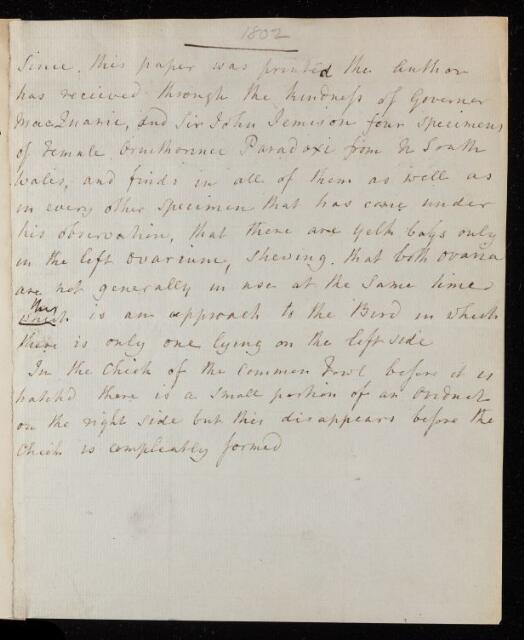 1802
Since this paper was printed the Author
has recieved through the kindness of Governor
MacQuarie, and Sir John Jemison four specimens
of Female Ornithorinci Paradoxi from N South
Wales, and finds in all of them as well as
in every other specimen that has come under
his observation, that there are yelk bags only
in the left ovarium, shewing that both ovaria
are not generally in use at the same time
this
which is an approach to the Bird in which
there is only one lying on the left side
In the Chick of the common Fowl before it is
hatchd there is a small portion of an oviduct
on the right side but this disappears before the
Chick is compleatly formed